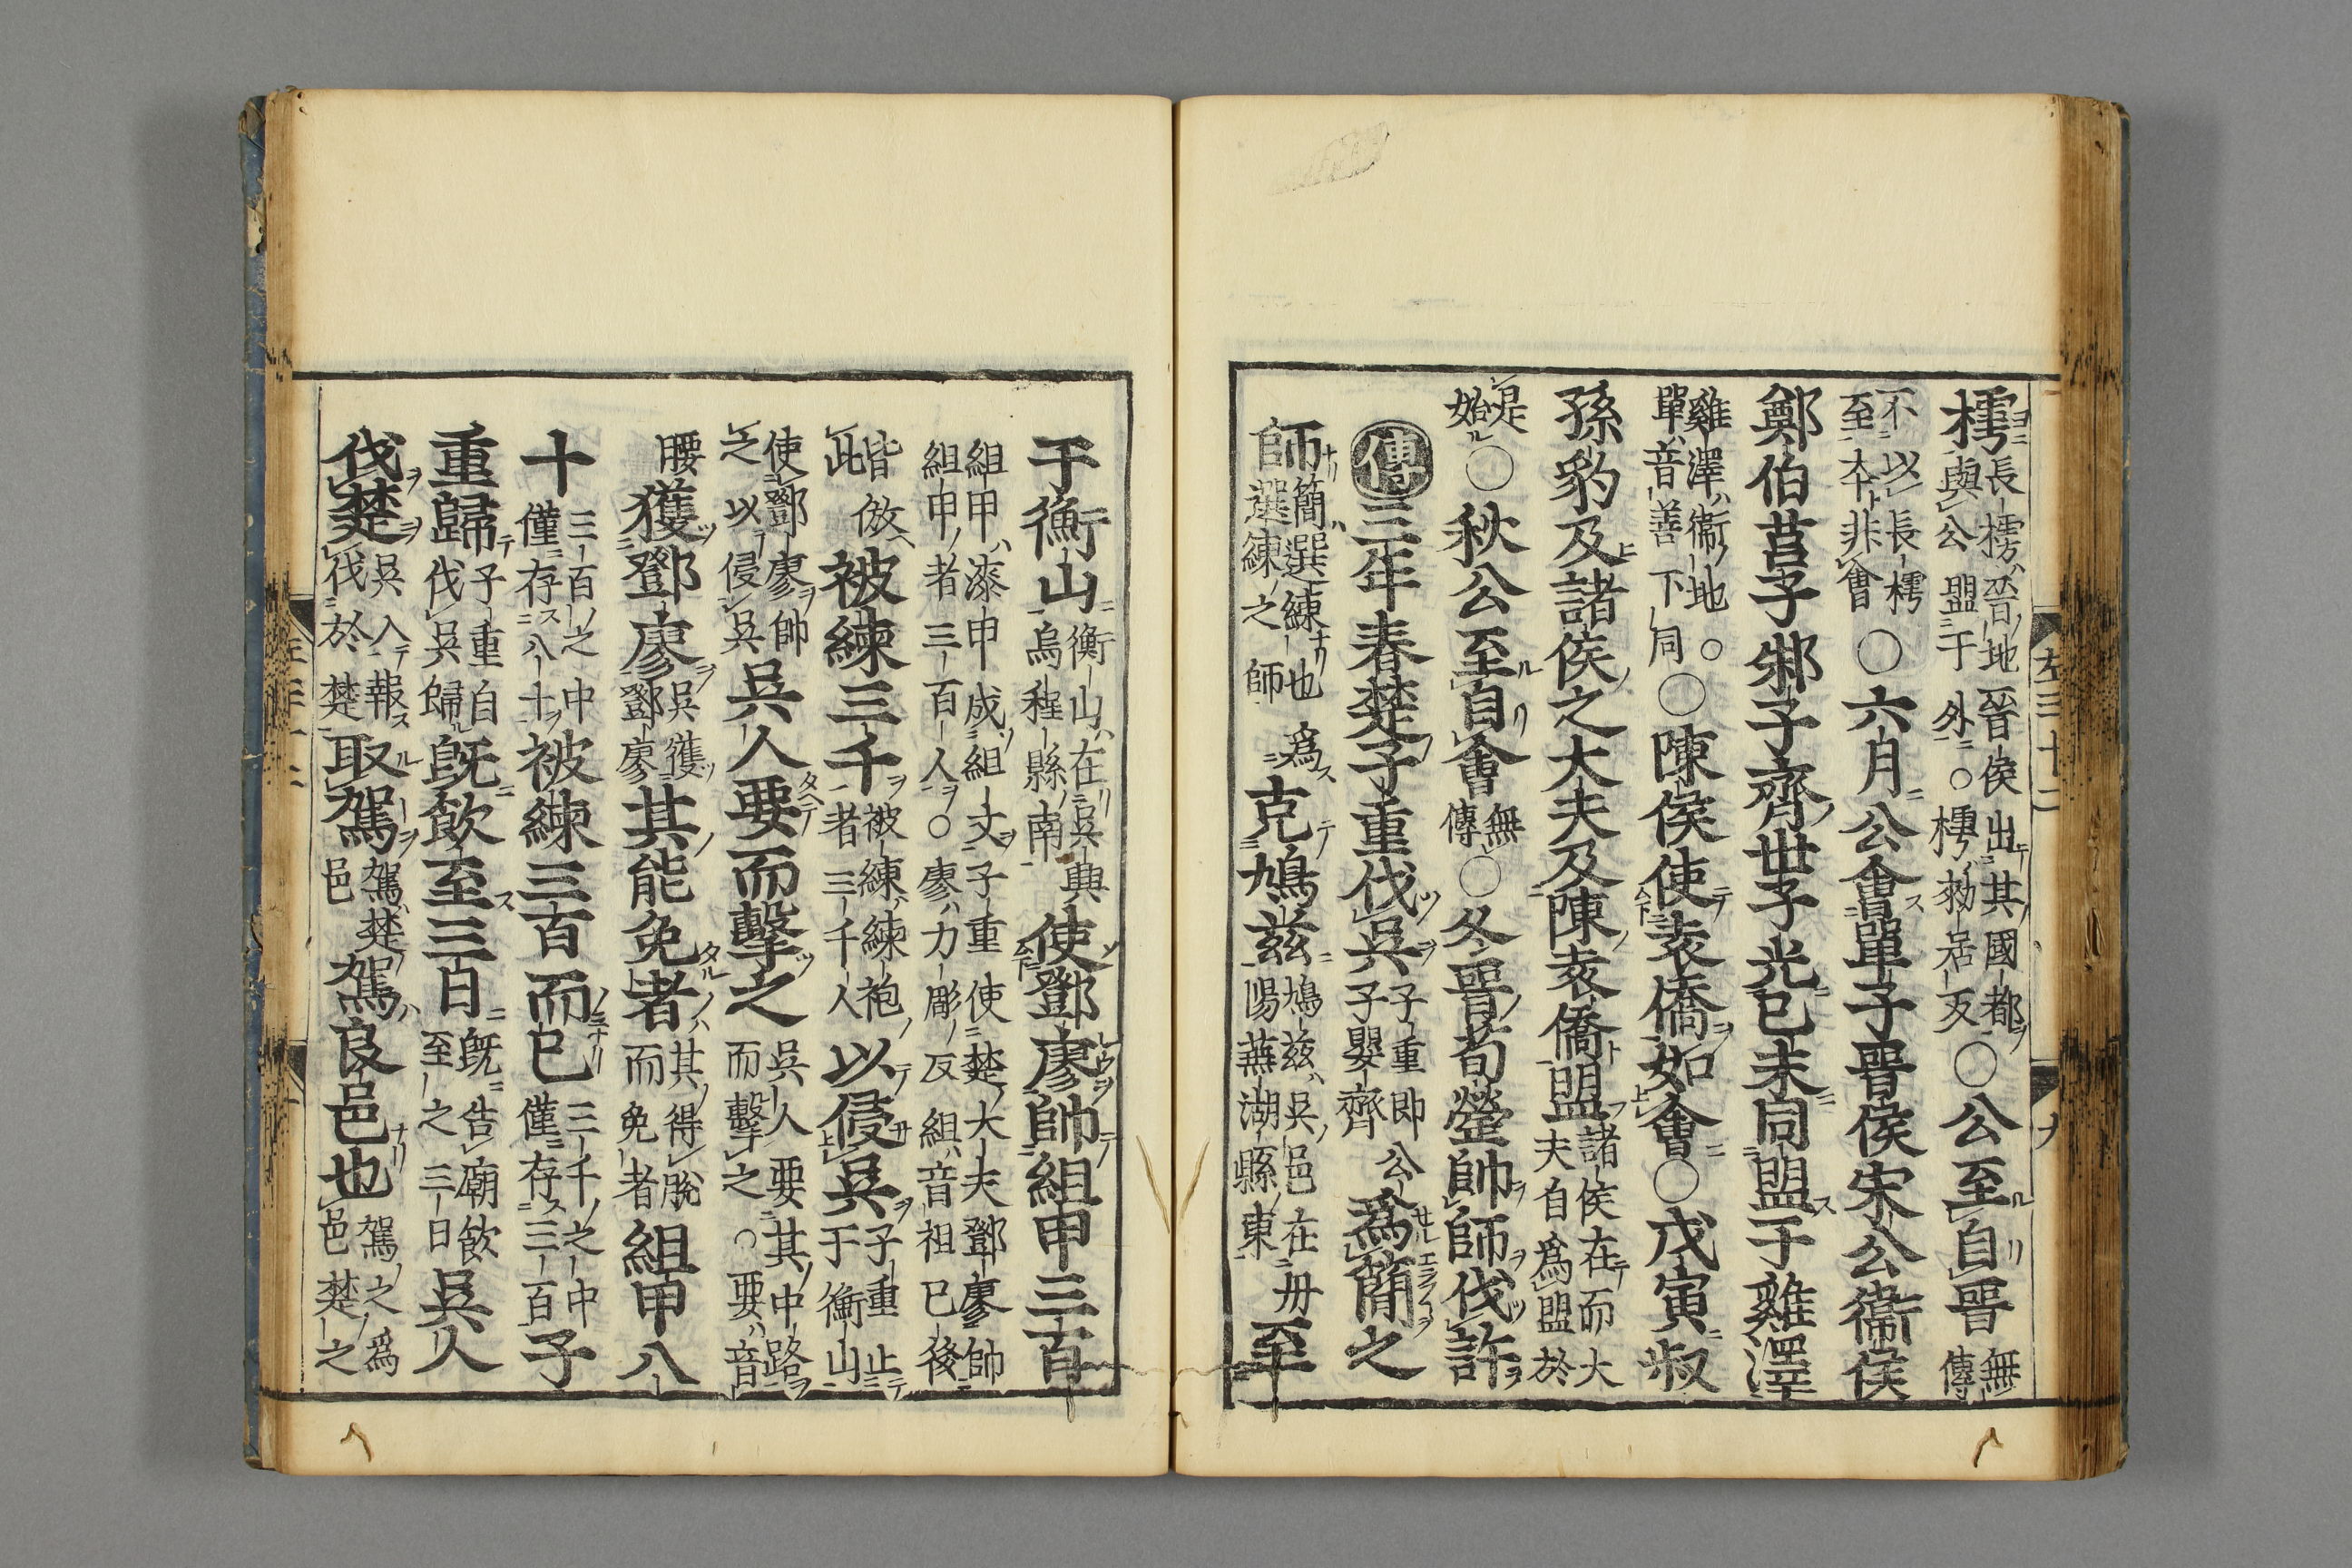 樗長樗晉地晉侯出其國都與公盟于外○樗勑居反○公至自晉無傳
不以長樗至本非會○六月公會單子晉侯宋公衞侯
鄭伯莒子邾子齊世子光已未同盟于雞澤
雞澤衞地○單音善下同○陳侯使袁僑如會○戊寅叔
孫豹及諸侯之大夫及陳袁僑盟諸侯在而大夫自爲盟於
是始○秋公至自會無傳○冬晉荀罃帥師伐許
傳三年春楚子重伐吳子重即公子嬰齊爲簡之
師簡選練也選練之師爲克鳩兹鳩兹吳邑在丹陽蕪湖縣東至
左三十二 九
于衡山衡山在吳興烏程縣南使鄧廖帥組甲三百
組甲漆甲成組文子重使楚大夫鄧廖帥組甲者三百人○廖力彫反組音祖已後
皆倣此被練三千被練練袍者三千人以侵吳子重止于衡山
使鄧廖帥之以侵吳吳人要而擊之吳人要其中路而擊之○要音
腰獲鄧廖吳獲鄧廖其能免者其得脫而免者組甲八
十三百之中僅存八十被練三百而已三千之中僅存三百子
重歸子重自伐吳歸既飲至三日既告廟飲至之三日吳人
伐楚吳入報伐於楚取駕駕楚邑駕良邑也駕之爲邑楚之